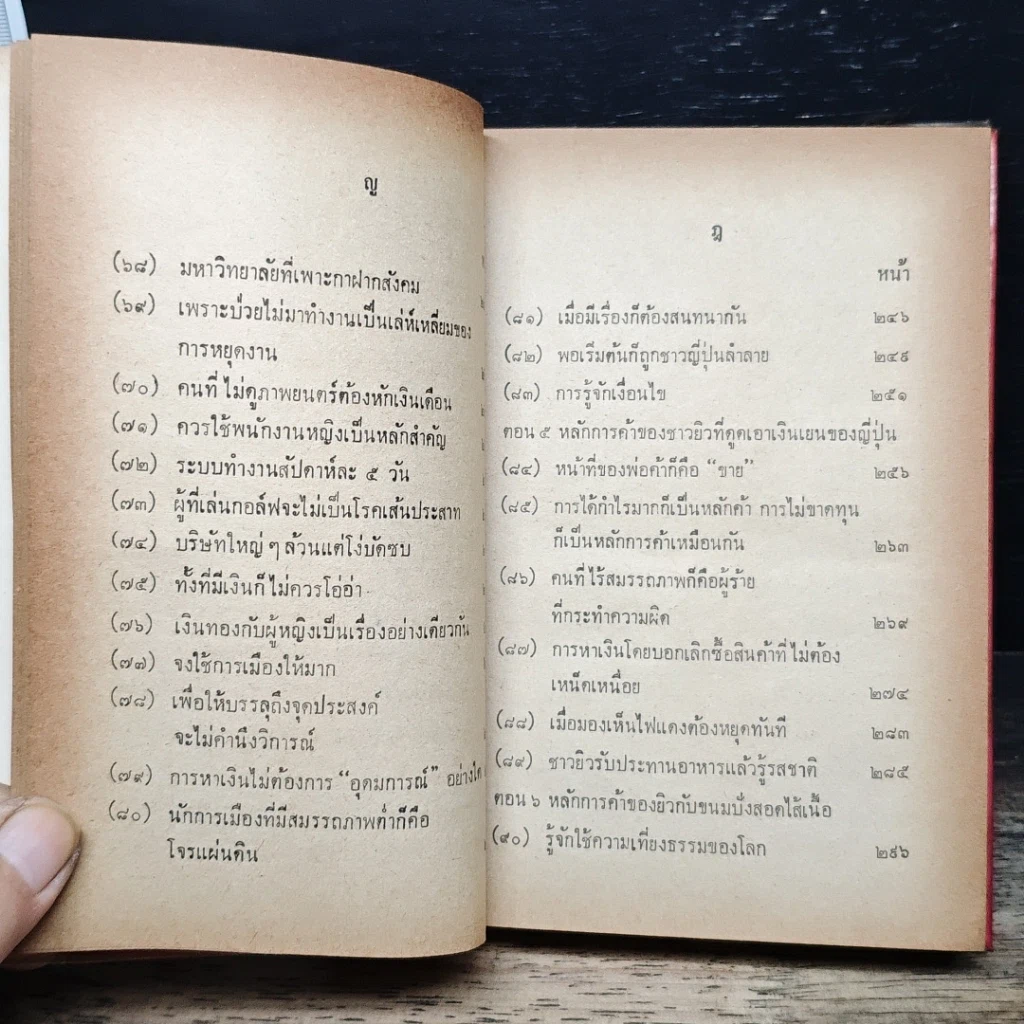 ญ
(๖๘) มหาวิทยาลัยที่เพาะกาฝากสังคม
(๖๙) เพราะป่วยไม่มาทำงานเป็นเล่ห์เหลี่ยมของ
การหยุดงาน
(๗๐) คนที่ไม่ดูภาพยนตร์ต้องหักเงินเดือน
(๗๑) ควรใช้พนักงานหญิงเป็นหลักสำคัญ
(๗๒) ระบบทำงานสัปดาห์ละ ๕ วัน
(๗๓) ผู้ที่เล่นกอล์ฟจะไม่เป็นโรคเส้นประสาท
(๗๔) บริษัทใหญ่ ๆ ล้วนแต่โง่บัดซบ
(๗๕) ทั้งที่มีเงินก็ไม่ควรโอ่อ่า
(๗๖) เงินทองกับผู้หญิงเป็นเรื่องอย่างเดียวกัน
(๗๗) จงใช้การเมืองให้มาก
(๗๘) เพื่อให้บรรลุถึงจุดประสงค์
จะไม่คำนึงวิการณ์
(๗๙) การหาเงินไม่ต้องการ “อุดมการณ์” อย่างใด
(๘๐) นักการเมืองที่มีสมรรถภาพต่ำก็คือ
โจรแผ่นดิน
ฎ
หน้า
(๘๑) เมื่อมีเรื่องก็ต้องสนทนากัน ๒๔๖
(๘๒) พอเริ่มต้นก็ถูกชาวญี่ปุ่นลำลาย ๒๔๙
(๘๓) การรู้จักเงื่อนไข ๒๕๑
ตอน ๕ หลักการค้าของชาวยิวที่ดูดเอาเงินเยนของญี่ปุ่น
(๘๔) หน้าที่ของพ่อค้าก็คือ “ขาย” ๒๕๖
(๘๕) การได้กำไรมากก็เป็นหลักค้า การไม่ขาดทุน
ก็เป็นหลักการค้าเหมือนกัน ๒๖๓
(๘๖) คนที่ไร้สมรรถภาพก็คือผู้ร้าย
ที่กระทำความผิด ๒๖๙
(๘๗) การหาเงินโดยบอกเลิกซื้อสินค้าที่ไม่ต้อง
เหน็ดเหนื่อย ๒๗๔
(๘๘) เมื่อมองเห็นไฟแดงต้องหยุดทันที ๒๘๓
(๘๙) ชาวยิวรับประทานอาหารแล้วรู้รสชาติ ๒๘๕
ตอน ๖ หลักการค้าของยิวกับขนมปังสอดไส้เนื้อ
(๙๐) รู้จักใช้ความเที่ยงธรรมของโลก ๒๙๖